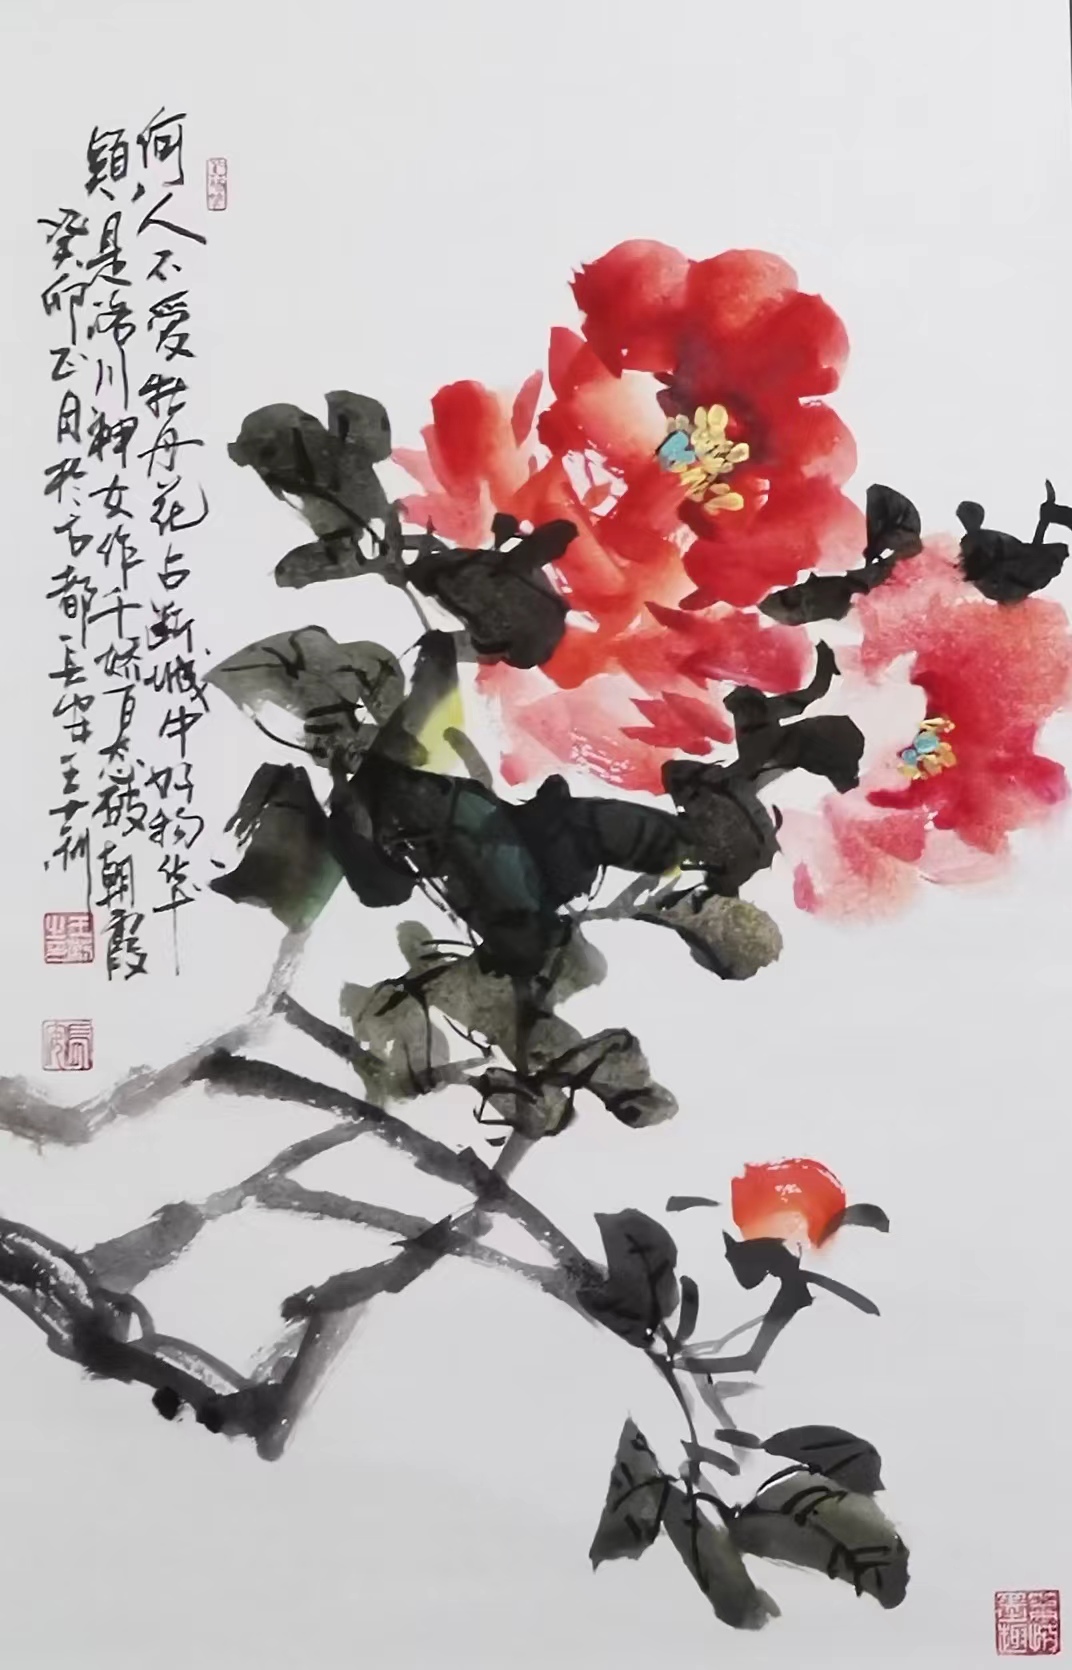 何人不爱牡丹花占断城中好物华
疑是洛川神女作千娇百态破朝霞
癸卯正月于古都长安王十川
长安
墨趣